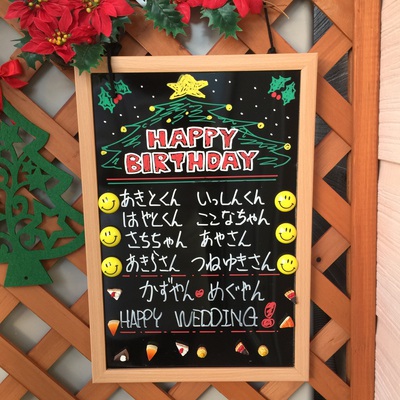 HAPPY
BIRTHDAY
あきとくん いっしんくん
はやとくん ここなちゃん
さちちゃん あやさん
あきらさん つねゆきさん
かずやん めぐやん
HAPPY WEDDING!